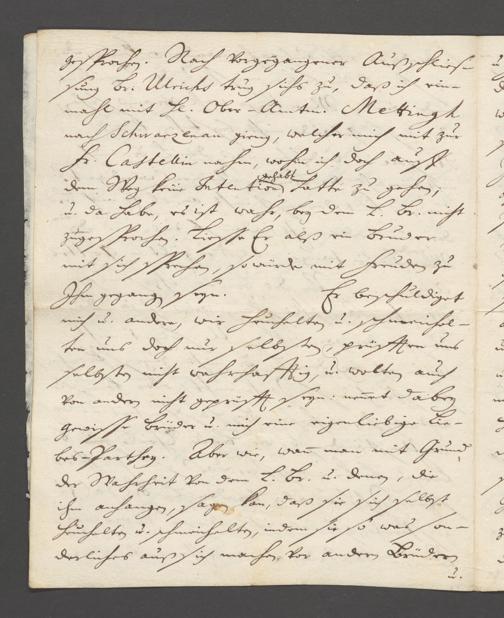 gesprochen. Nach vorgegangener Außschlies-
sung Br. Ulrichs trug sichs zu, daß ich ein-
mahl mit H. Ober-Amtm. Mettingh
nach Schwarzenau gieng, welcher mich mit zu
Fr. Castellin nahm, wohin ich doch auff
dem Weg keine Intention gehabt hatte zu gehen,
u. da habe, es ist wahr, bey dem L. Br. nicht
zugesprochen. Liesse Er alß ein Bruder
mit sich sprechen, so würde mit freuden zu
Ihm gegangen seyn. Er beschuldiget
mich u. andere, wir heuchelten u. schmeichel-
ten uns doch nur selbsten, prüfften uns
selbsten nicht wahrhafftig, u. wolten auch
von andern nicht geprüfft seyn: nennet dabey
gewisse Brüder u. mich eine eigenliebige Lie-
bes-Parthey. Aber wie, wann man mit Grund
der Wahrheit von dem L. Br. u. denen, die
ihm anhangen, sagen kan, daß sie sich selbst
heuchelten u. schmeichelten, indem sie so was son-
derliches auß sich machen, vor andern Brüdern
u.